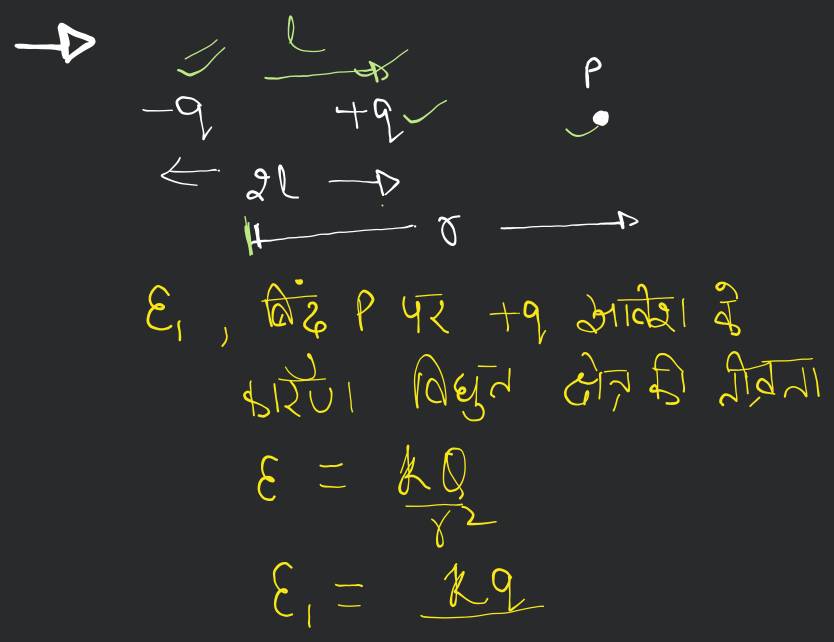 l
P
-q +q
2l
r
E₁, बिंदु P पर +q आवेश के
कारण विद्युत क्षेत्र की तीव्रता
E = kQ/r²
E₁ = kq